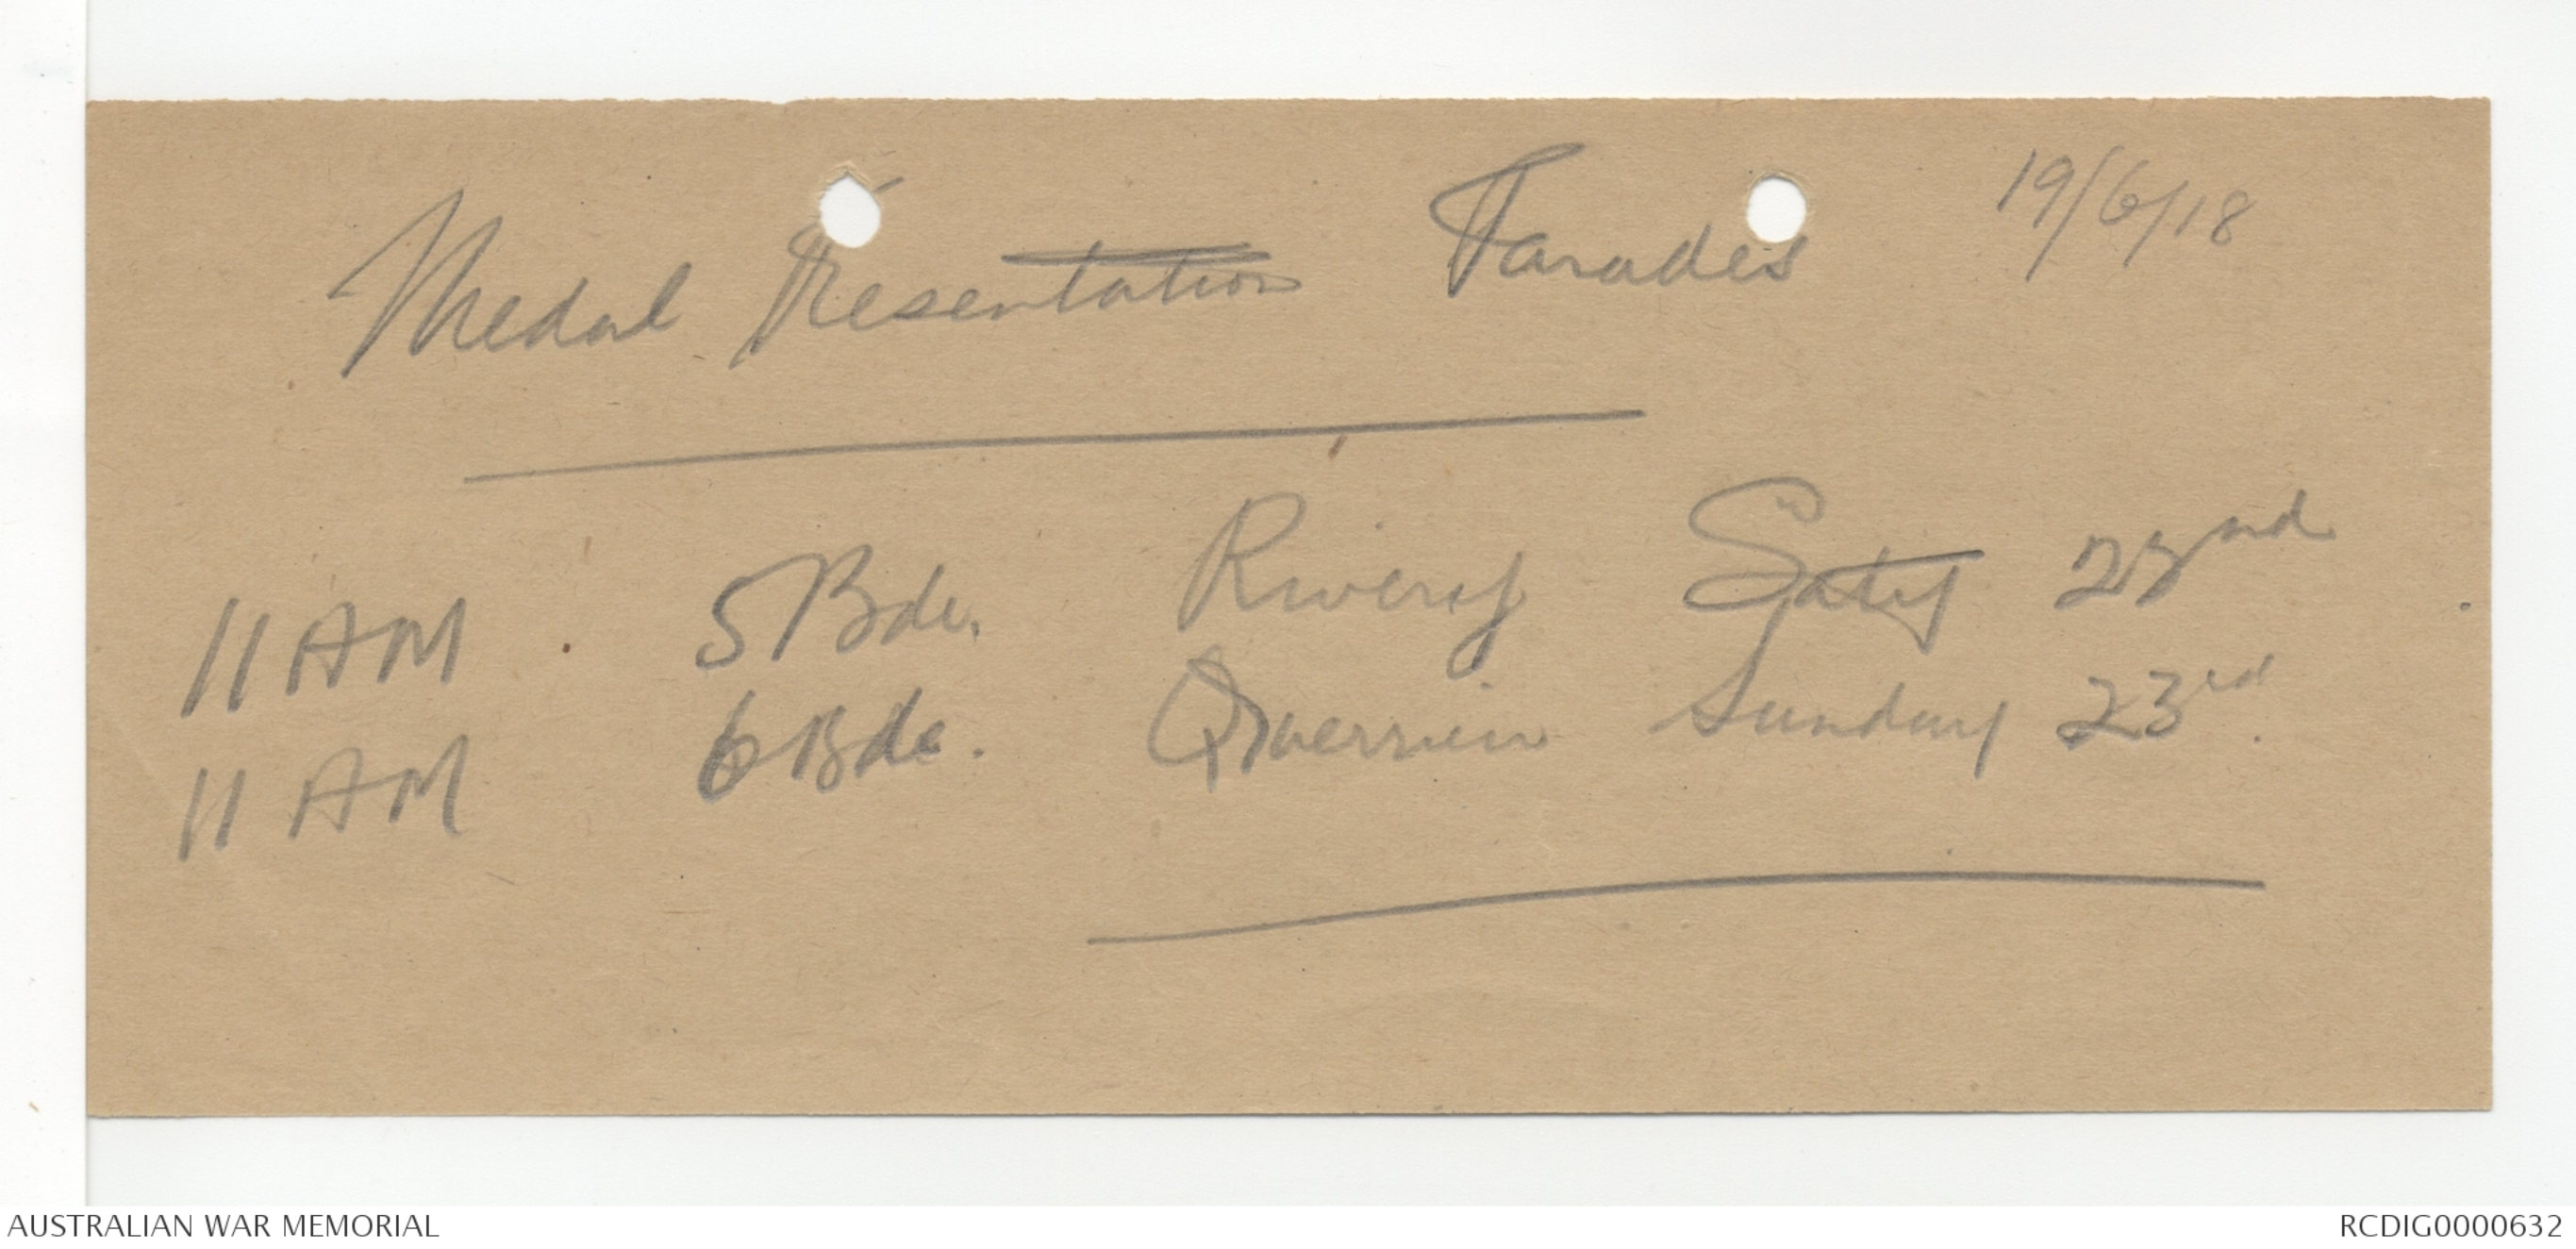 19/6/18
Medal Presentation Parades
11 AM 5 Bde. Rivery Saty 22nd
11 AM 6 Bde. Querrieu Sunday 23rd.
AUSTRALIAN WAR MEMORIAL
RCDIG0000632